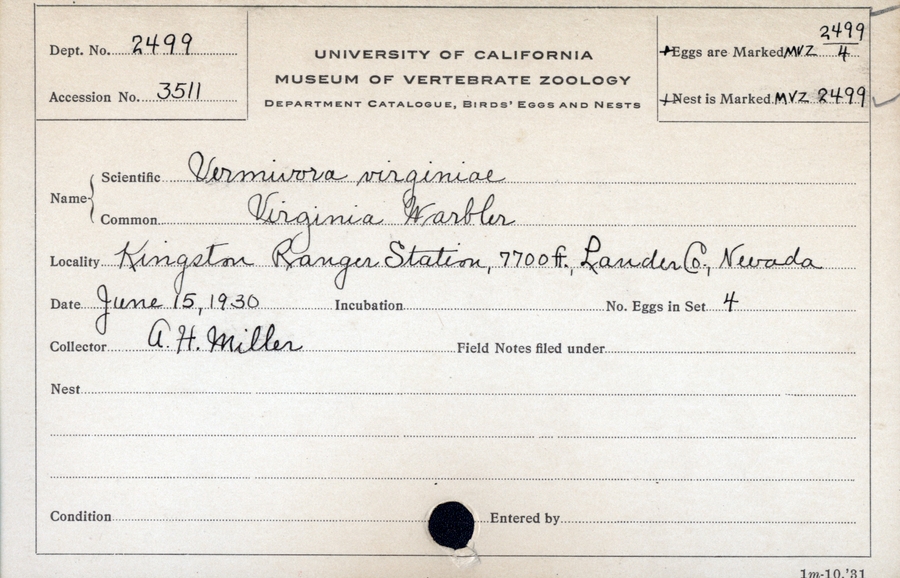 Dept. No. 2499
Accession No. 3511
UNIVERSITY OF CALIFORNIA
MUSEUM OF VERTEBRATE ZOOLOGY
DEPARTMENT CATALOGUE, BIRDS' EGGS AND NESTS
Eggs are Marked MVZ 2499/4
Nest is Marked MVZ 2499
Name
Scientific Vermivora virginiae
Common Virginia Warbler
Locality Kingston Ranger Station, 7700 ft., Lander Co., Nevada
Date June 15, 1930 Incubation No. Eggs in Set 4
Collector A. H. Miller Field Notes filed under
Nest
Condition Entered by
1m-10,'31